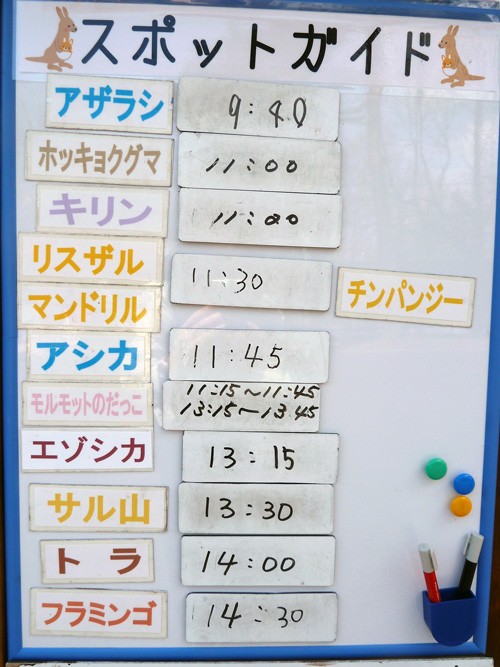 スポットガイド
アザラシ 9:40
ホッキョクグマ 11:00
キリン 11:00
リスザル
マンドリル 11:30 チンパンジー
アシカ 11:45
モルモットのだっこ 11:15〜11:45
13:15〜13:45
エゾシカ 13:15
サル山 13:30
トラ 14:00
フラミンゴ 14:30